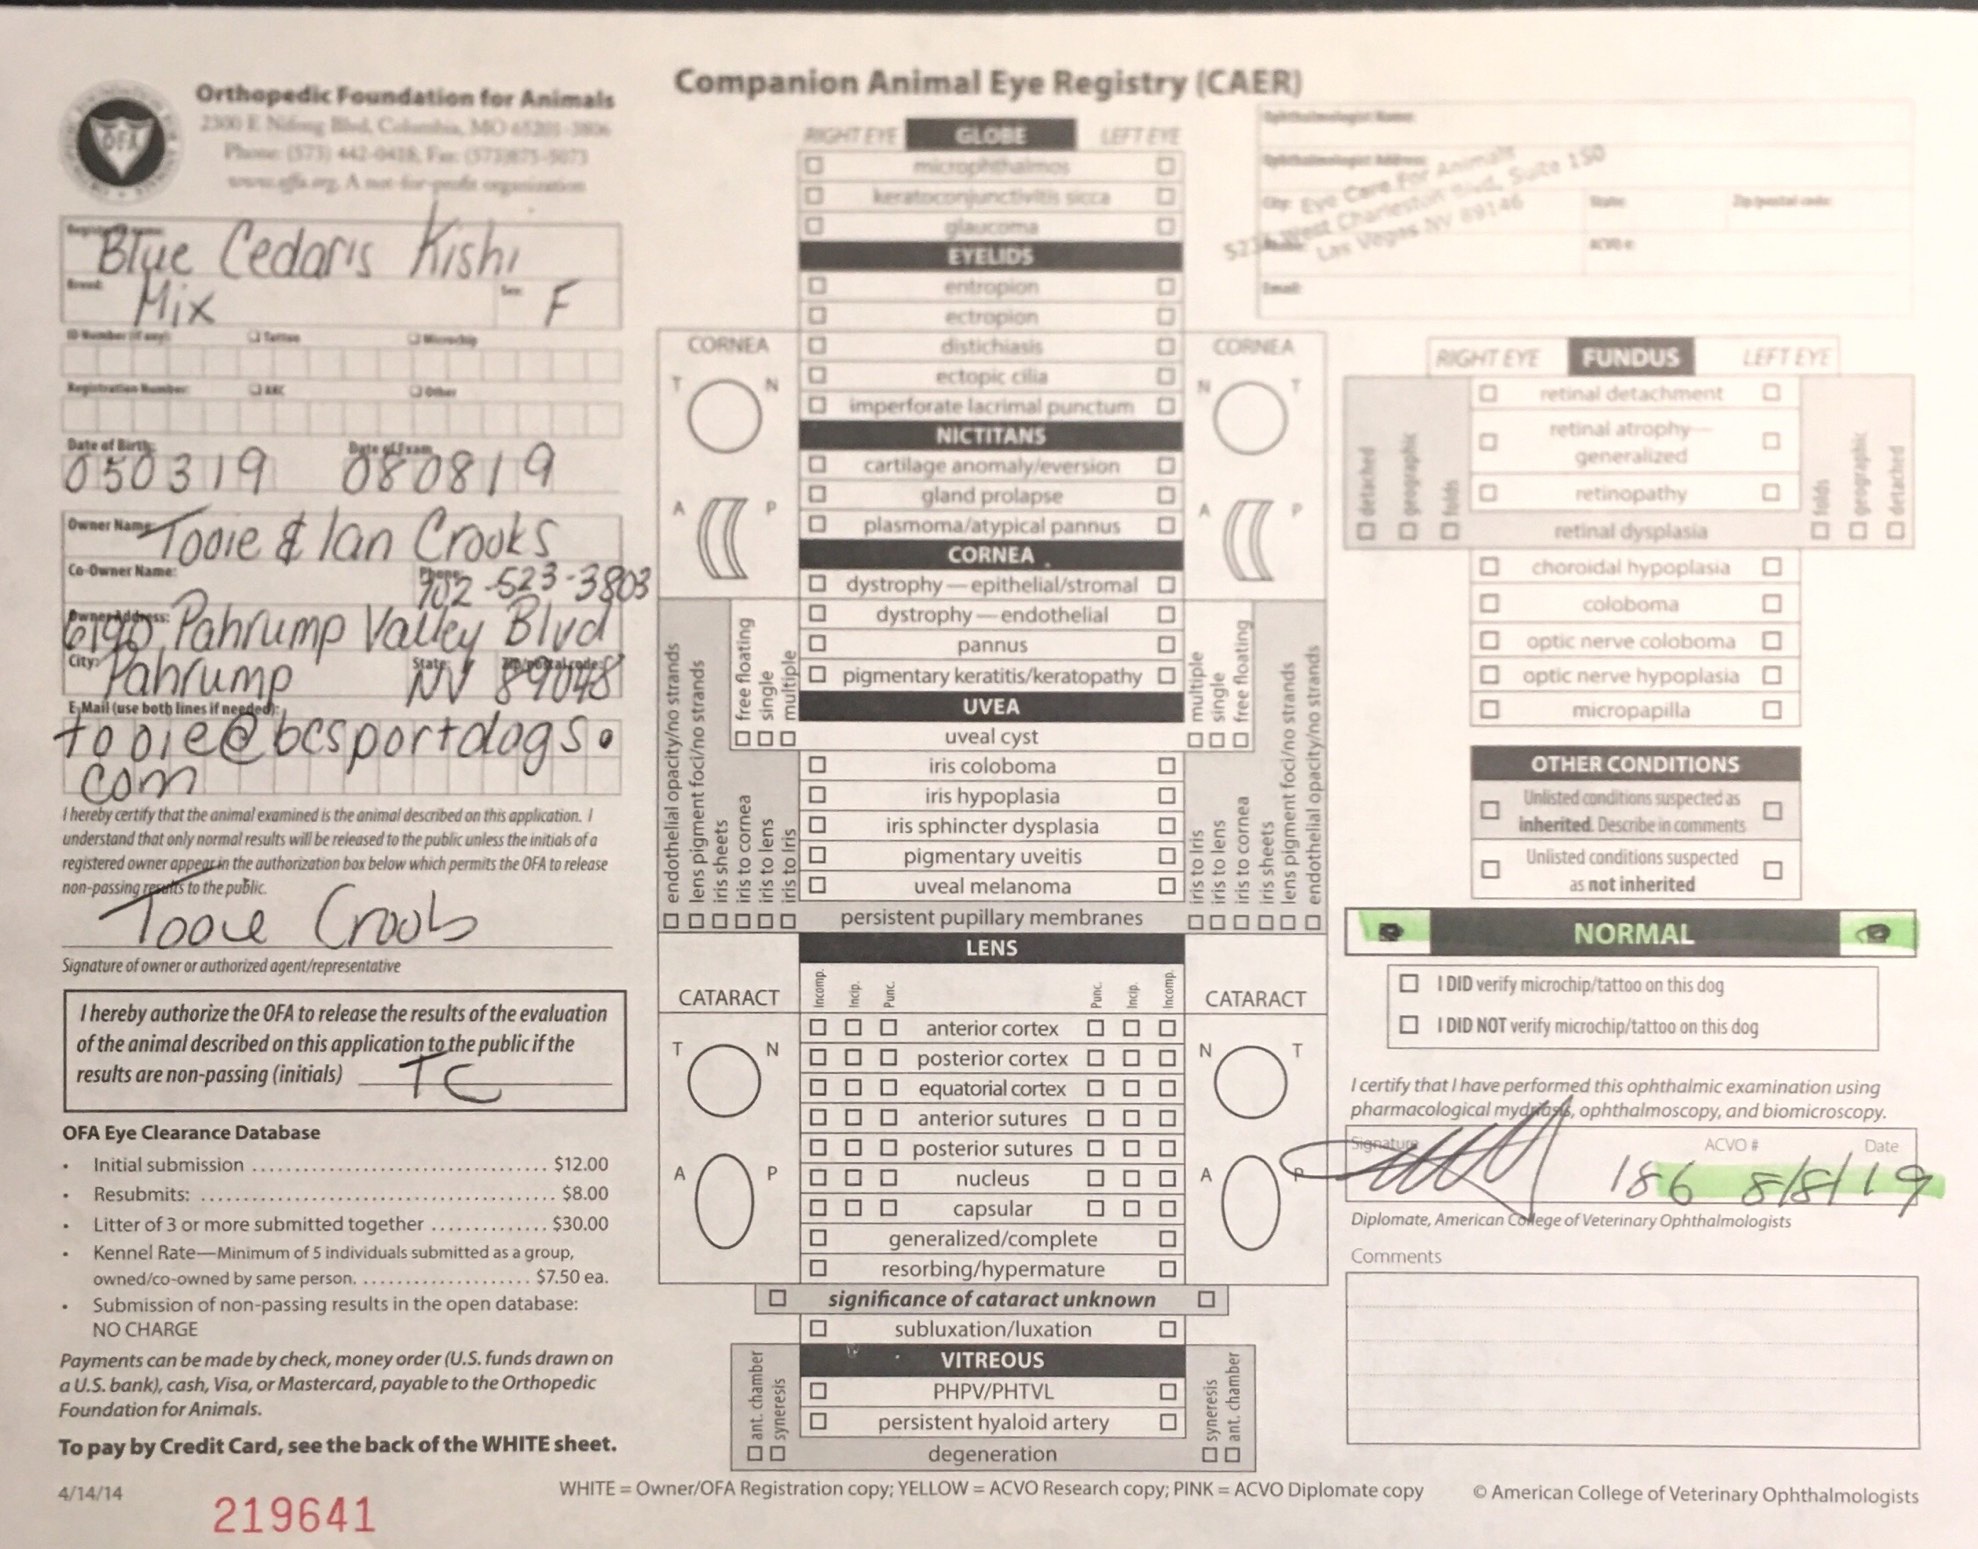 Companion Animal Eye Registry (CAER)
OFA
Orthopedic Foundation for Animals
2300 E Nifong Blvd, Columbia, MO 65201-3806
Phone: (573) 442-0418, Fax: (573)875-5073
www.offa.org, A not-for-profit organization
Registered name:
Blue Cedaris Kishi
Breed: Mix Sex: F
ID Number (if any): Tattoo Microchip
Registration Number: AKC Other
Date of Birth: Date of Exam
050319 080819
Owner Name: Tooie & Ian Crooks
Co-Owner Name: Phone: 702-523-3803
Owner Address: 6190 Pahrump Valley Blvd
City: Pahrump State: NV Zip/postal code: 89048
E-Mail (use both lines if needed):
tooie@bcsportdogs.
com
I hereby certify that the animal examined is the animal described on this application. I
understand that only normal results will be released to the public unless the initials of a
registered owner appear in the authorization box below which permits the OFA to release
non-passing results to the public.
Tooie Crooks
Signature of owner or authorized agent/representative
I hereby authorize the OFA to release the results of the evaluation
of the animal described on this application to the public if the
results are non-passing (initials) TC
OFA Eye Clearance Database
• Initial submission ........ $12.00
• Resubmits: ........ $8.00
• Litter of 3 or more submitted together ........ $30.00
• Kennel Rate—Minimum of 5 individuals submitted as a group,
owned/co-owned by same person. ........ $7.50 ea.
• Submission of non-passing results in the open database:
NO CHARGE
Payments can be made by check, money order (U.S. funds drawn on
a U.S. bank), cash, Visa, or Mastercard, payable to the Orthopedic
Foundation for Animals.
To pay by Credit Card, see the back of the WHITE sheet.
4/14/14
219641
RIGHT EYE GLOBE LEFT EYE
microphthalmos
keratoconjunctivitis sicca
glaucoma
EYELIDS
entropion
ectropion
distichiasis
ectopic cilia
imperforate lacrimal punctum
NICTITANS
cartilage anomaly/eversion
gland prolapse
plasmoma/atypical pannus
CORNEA
dystrophy—epithelial/stromal
dystrophy—endothelial
pannus
pigmentary keratitis/keratopathy
UVEA
uveal cyst
iris coloboma
iris hypoplasia
iris sphincter dysplasia
pigmentary uveitis
uveal melanoma
persistent pupillary membranes
CORNEA
T N
A P
free floating
single
multiple
endothelial opacity/no strands
lens pigment foci/no strands
iris sheets
iris to cornea
iris to lens
iris to Iris
CORNEA
N T
A P
multiple
single
free floating
iris to Iris
iris to lens
iris to cornea
iris sheets
lens pigment foci/no strands
endothelial opacity/no strands
LENS
CATARACT Incomp. Incip. Punc. Punc. Incip. Incomp. CATARACT
anterior cortex
T N posterior cortex N T
equatorial cortex
anterior sutures
posterior sutures
A P nucleus A P
capsular
generalized/complete
resorbing/hypermature
significance of cataract unknown
subluxation/luxation
VITREOUS
PHPV/PHTVL
persistent hyaloid artery
degeneration
ant. chamber
syneresis
syneresis
ant. chamber
WHITE = Owner/OFA Registration copy; YELLOW = ACVO Research copy; PINK = ACVO Diplomate copy
Ophthalmologist Name:
Ophthalmologist Address:
City: State: Zip/postal code:
ACVO #:
Email:
Eye Care For Animals
West Charleston Blvd, Suite 150
Las Vegas NV 89146
RIGHT EYE FUNDUS LEFT EYE
retinal detachment
retinal atrophy—
generalized
retinopathy
retinal dysplasia
detached
geographic
folds
folds
geographic
detached
choroidal hypoplasia
coloboma
optic nerve coloboma
optic nerve hypoplasia
micropapilla
OTHER CONDITIONS
Unlisted conditions suspected as
inherited. Describe in comments
Unlisted conditions suspected
as not inherited
NORMAL
I DID verify microchip/tattoo on this dog
I DID NOT verify microchip/tattoo on this dog
I certify that I have performed this ophthalmic examination using
pharmacological mydriasis, ophthalmoscopy, and biomicroscopy.
Signature ACVO # Date
186 8/8/19
Diplomate, American College of Veterinary Ophthalmologists
Comments
© American College of Veterinary Ophthalmologists